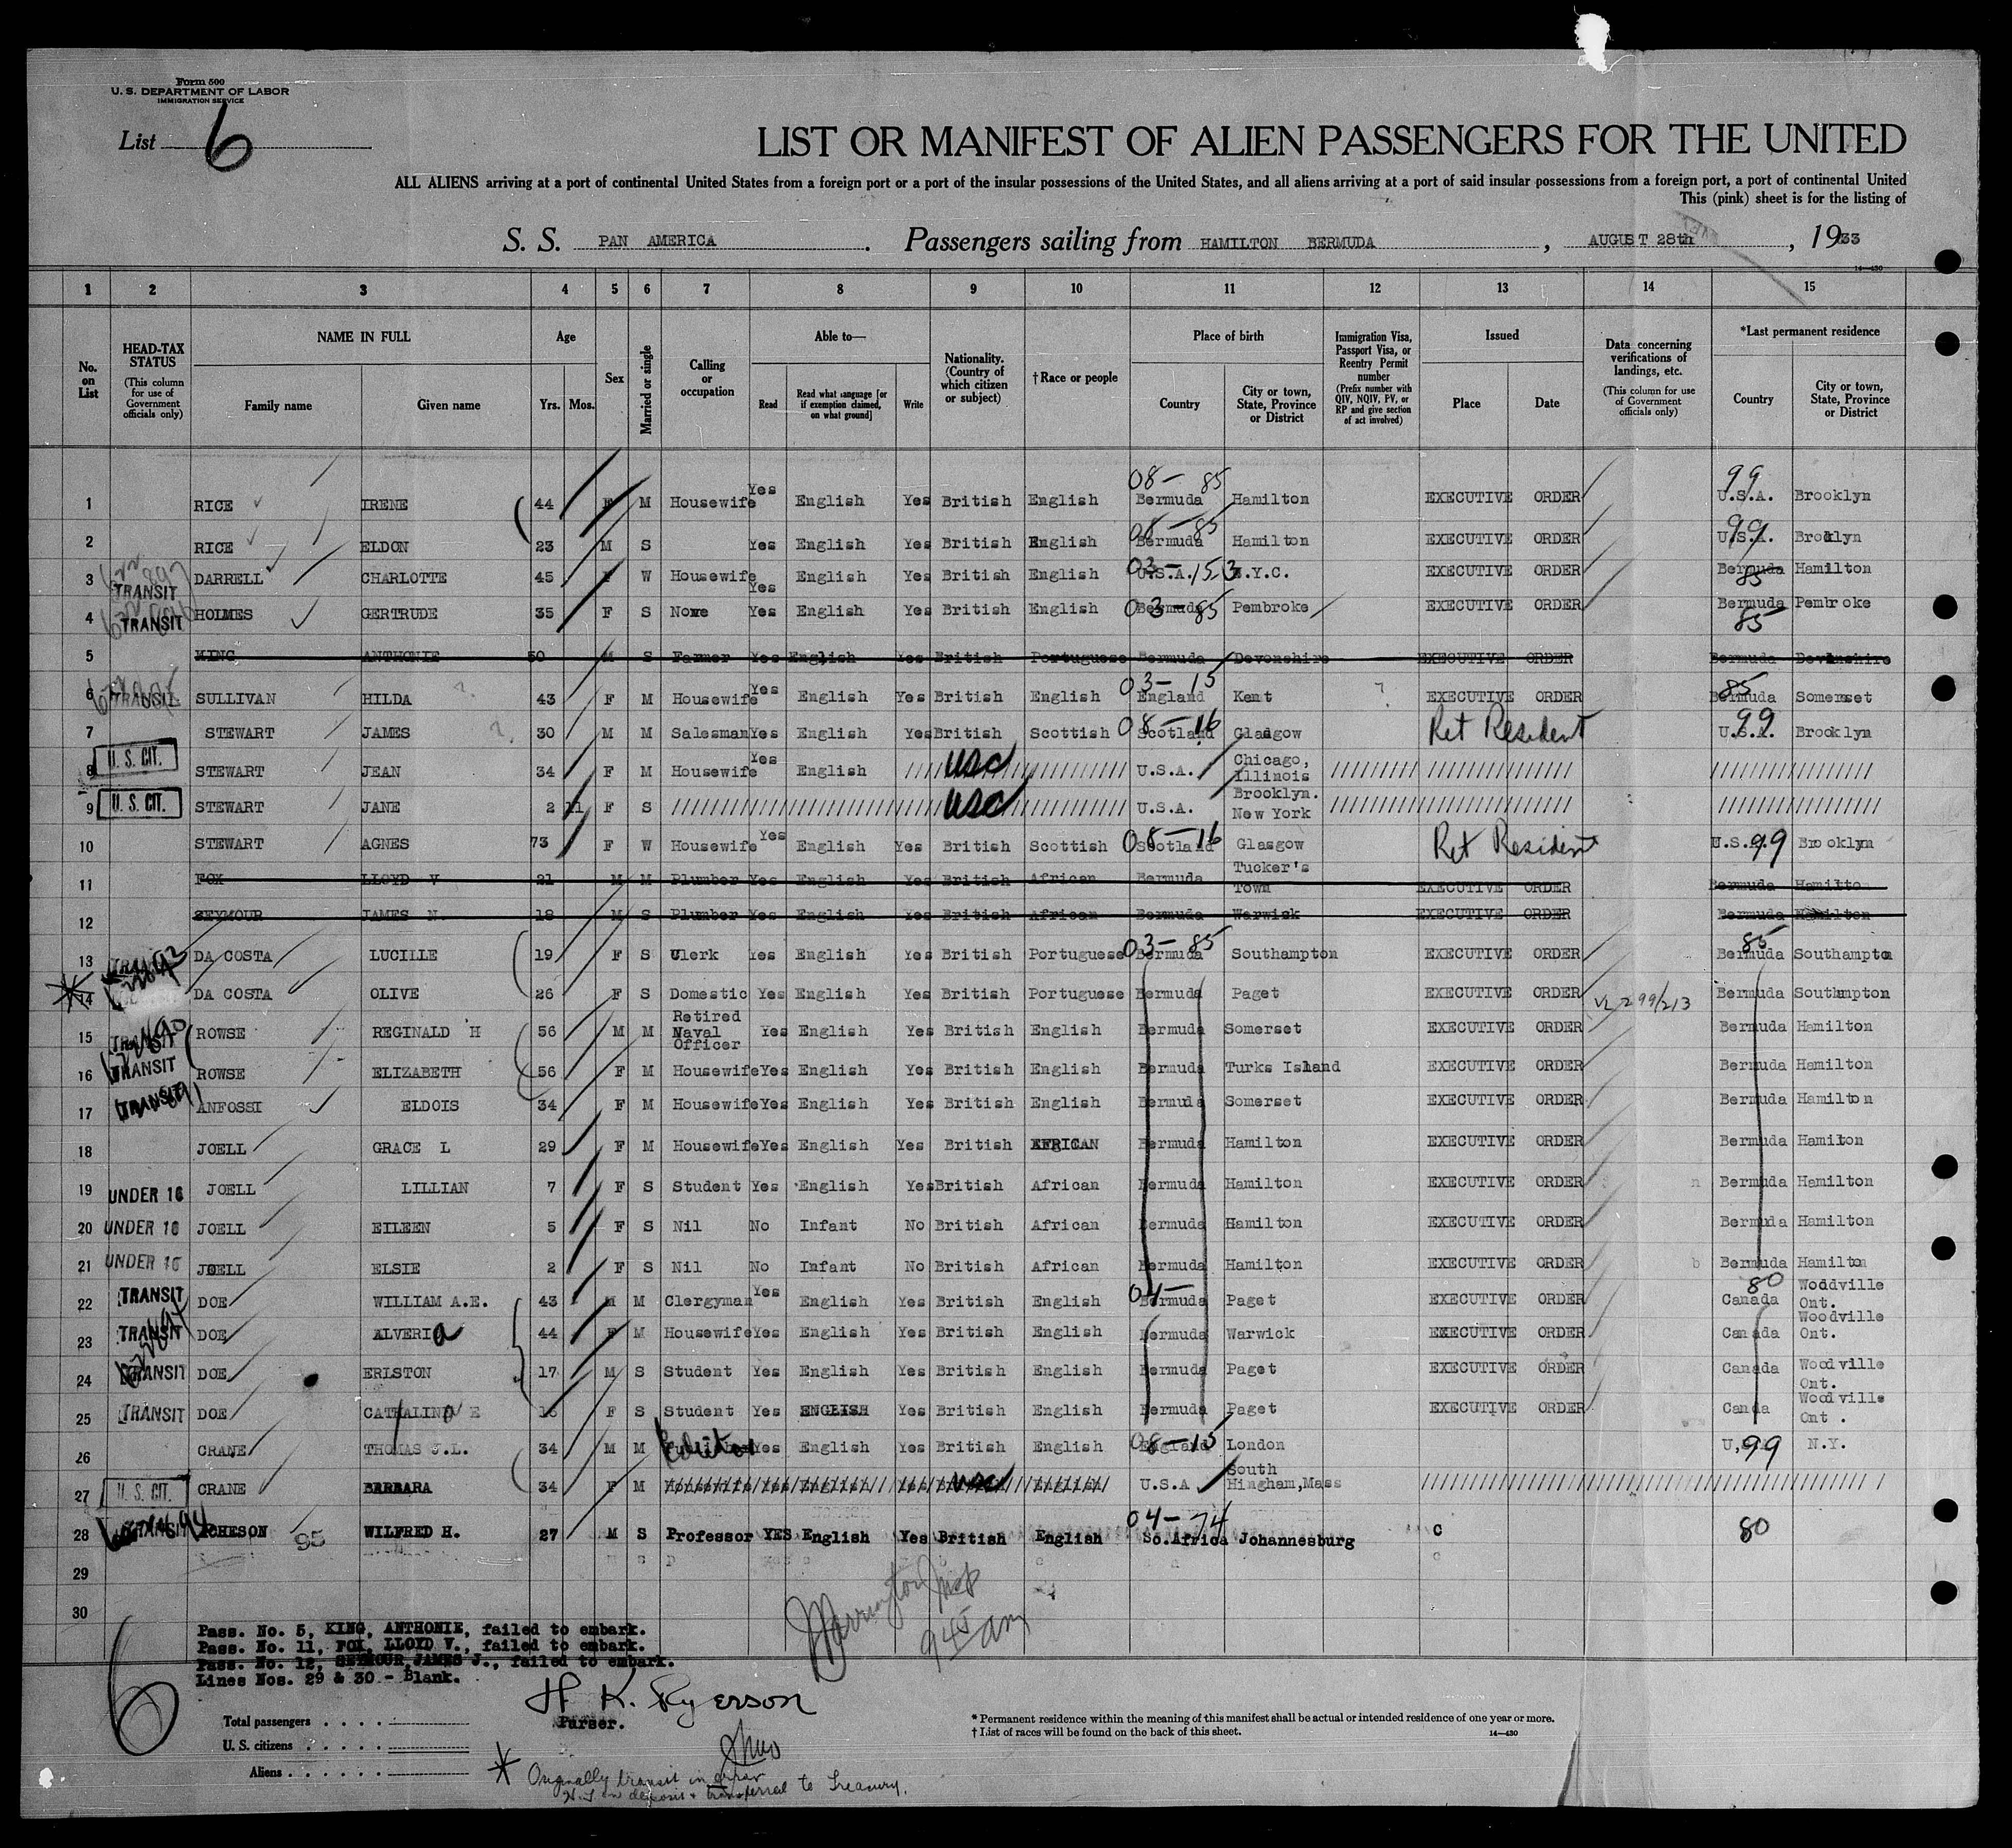 Form 500
U. S. DEPARTMENT OF LABOR
IMMIGRATION SERVICE
List 6
LIST OR MANIFEST OF ALIEN PASSENGERS FOR THE UNITED
ALL ALIENS arriving at a port of continental United States from a foreign port or a port of the insular possessions of the United States, and all aliens arriving at a port of said insular possessions from a foreign port, a port of continental United
This (pink) sheet is for the listing of
S. S. PAN AMERICA . Passengers sailing from HAMILTON BERMUDA , AUGUST 28th , 1933
14—430
1 2 3 4 5 6 7 8 9 10 11 12 13 14 15
No. on List
HEAD-TAX STATUS (This column for use of Government officials only)
NAME IN FULL Family name Given name
Age Yrs. Mos.
Sex
Married or single
Calling or occupation
Able to— Read Read what language [or if exemption claimed, on what ground] Write
Nationality. (Country of which citizen or subject)
†Race or people
Place of birth Country City or town, State, Province or District
Immigration Visa, Passport Visa, or Reentry Permit number (Prefix number with QIV, NQIV, PV, or RP and give section of act involved)
Issued Place Date
Data concerning verifications of landings, etc. (This column for use of Government officials only)
*Last permanent residence Country City or town, State, Province or District
1 RICE IRENE 44 F M Housewife Yes English Yes British English 08-85 Bermuda Hamilton EXECUTIVE ORDER 99 U.S.A. Brooklyn
2 RICE ELDON 23 M S Yes English Yes British English 08-85 Bermuda Hamilton EXECUTIVE ORDER 99 U.S.A. Brooklyn
3 TRANSIT DARRELL CHARLOTTE 45 F W Housewife Yes English Yes British English 03-153 U.S.A. N.Y.C. EXECUTIVE ORDER Bermuda 85 Hamilton
4 TRANSIT HOLMES GERTRUDE 35 F S None Yes English Yes British English 03-85 Bermuda Pembroke EXECUTIVE ORDER Bermuda 85 Pembroke
5 KING ANTHONIE 50 M S Farmer Yes English Yes British Portuguese Bermuda Devonshire EXECUTIVE ORDER Bermuda Devonshire
6 TRANSIT SULLIVAN HILDA ? 43 F M Housewife Yes English Yes British English 03-15 England Kent ? EXECUTIVE ORDER 85 Bermuda Somerset
7 STEWART JAMES ? 30 M M Salesman Yes English Yes British Scottish 08-16 Scotland Glasgow Ret Resident 99 U.S.A. Brooklyn
8 U. S. CIT. STEWART JEAN 34 F M Housewife Yes English USC U.S.A. Chicago, Illinois
9 U. S. CIT. STEWART JANE 2 11 F S USC U.S.A. Brooklyn. New York
10 STEWART AGNES 73 F W Housewife Yes English Yes British Scottish 08-16 Scotland Glasgow Ret Resident U.S. 99 Brooklyn
11 FOX LLOYD V 21 M M Plumber Yes English Yes British African Bermuda Tucker's Town EXECUTIVE ORDER Bermuda Hamilton
12 SEYMOUR JAMES N. 18 M S Plumber Yes English Yes British African Bermuda Warwick EXECUTIVE ORDER Bermuda Hamilton
13 DA COSTA LUCILLE 19 F S Clerk Yes English Yes British Portuguese 03-85 Bermuda Southampton EXECUTIVE ORDER 85 Bermuda Southampton
* 14 DA COSTA OLIVE 26 F S Domestic Yes English Yes British Portuguese Bermuda Paget EXECUTIVE ORDER VL 299/213 Bermuda Southampton
15 ROWSE REGINALD H 56 M M Retired Naval Officer Yes English Yes British English Bermuda Somerset EXECUTIVE ORDER Bermuda Hamilton
16 TRANSIT ROWSE ELIZABETH 56 F M Housewife Yes English Yes British English Bermuda Turks Island EXECUTIVE ORDER Bermuda Hamilton
17 TRANSIT ANFOSSI ELDOIS 34 F M Housewife Yes English Yes British English Bermuda Somerset EXECUTIVE ORDER Bermuda Hamilton
18 JOELL GRACE L 29 F M Housewife Yes English Yes British AFRICAN Bermuda Hamilton EXECUTIVE ORDER Bermuda Hamilton
19 UNDER 16 JOELL LILLIAN 7 F S Student Yes English Yes British African Bermuda Hamilton EXECUTIVE ORDER Bermuda Hamilton
20 UNDER 16 JOELL EILEEN 5 F S Nil No Infant No British African Bermuda Hamilton EXECUTIVE ORDER Bermuda Hamilton
21 UNDER 16 JOELL ELSIE 2 F S Nil No Infant No British African Bermuda Hamilton EXECUTIVE ORDER Bermuda Hamilton
22 TRANSIT DOE WILLIAM A.E. 43 M M Clergyman Yes English Yes British English 04- Bermuda Paget EXECUTIVE ORDER 80 Canada Woodville Ont.
23 TRANSIT DOE ALVERIA 44 F M Housewife Yes English Yes British English Bermuda Warwick EXECUTIVE ORDER Canada Woodville Ont.
24 TRANSIT DOE ERLSTON 17 M S Student Yes English Yes British English Bermuda Paget EXECUTIVE ORDER Canada Woodville Ont.
25 TRANSIT DOE CATHALINA E 16 F S Student Yes ENGLISH Yes British English Bermuda Paget EXECUTIVE ORDER Canada Woodville Ont.
26 CRANE THOMAS J.L. 34 M M Yes English Yes British English 08-15 England London U, 99 N.Y.
27 U. S. CIT. CRANE BARBARA 34 F M Housewife Yes English Yes USC English U.S.A South Hingham, Mass
28 ACHESON 95 WILFRED H. 27 M S Professor YES English Yes British English 04-74 So.Africa Johannesburg C 80
29
30
Pass. No. 5, KING, ANTHONIE, failed to embark.
Pass. No. 11, FOX, LLOYD V., failed to embark.
Pass. No. 12, SEYMOUR, JAMES J., failed to embark.
Lines Nos. 29 & 30 - Blank.
6
Harrington Insp
945 am
H. K. Ryerson
Purser.
Total passengers
U. S. citizens
Aliens
* Permanent residence within the meaning of this manifest shall be actual or intended residence of one year or more.
† List of races will be found on the back of this sheet.
14—430
* Originally transit in error
H.T. on deposit & transferred to Treasury.